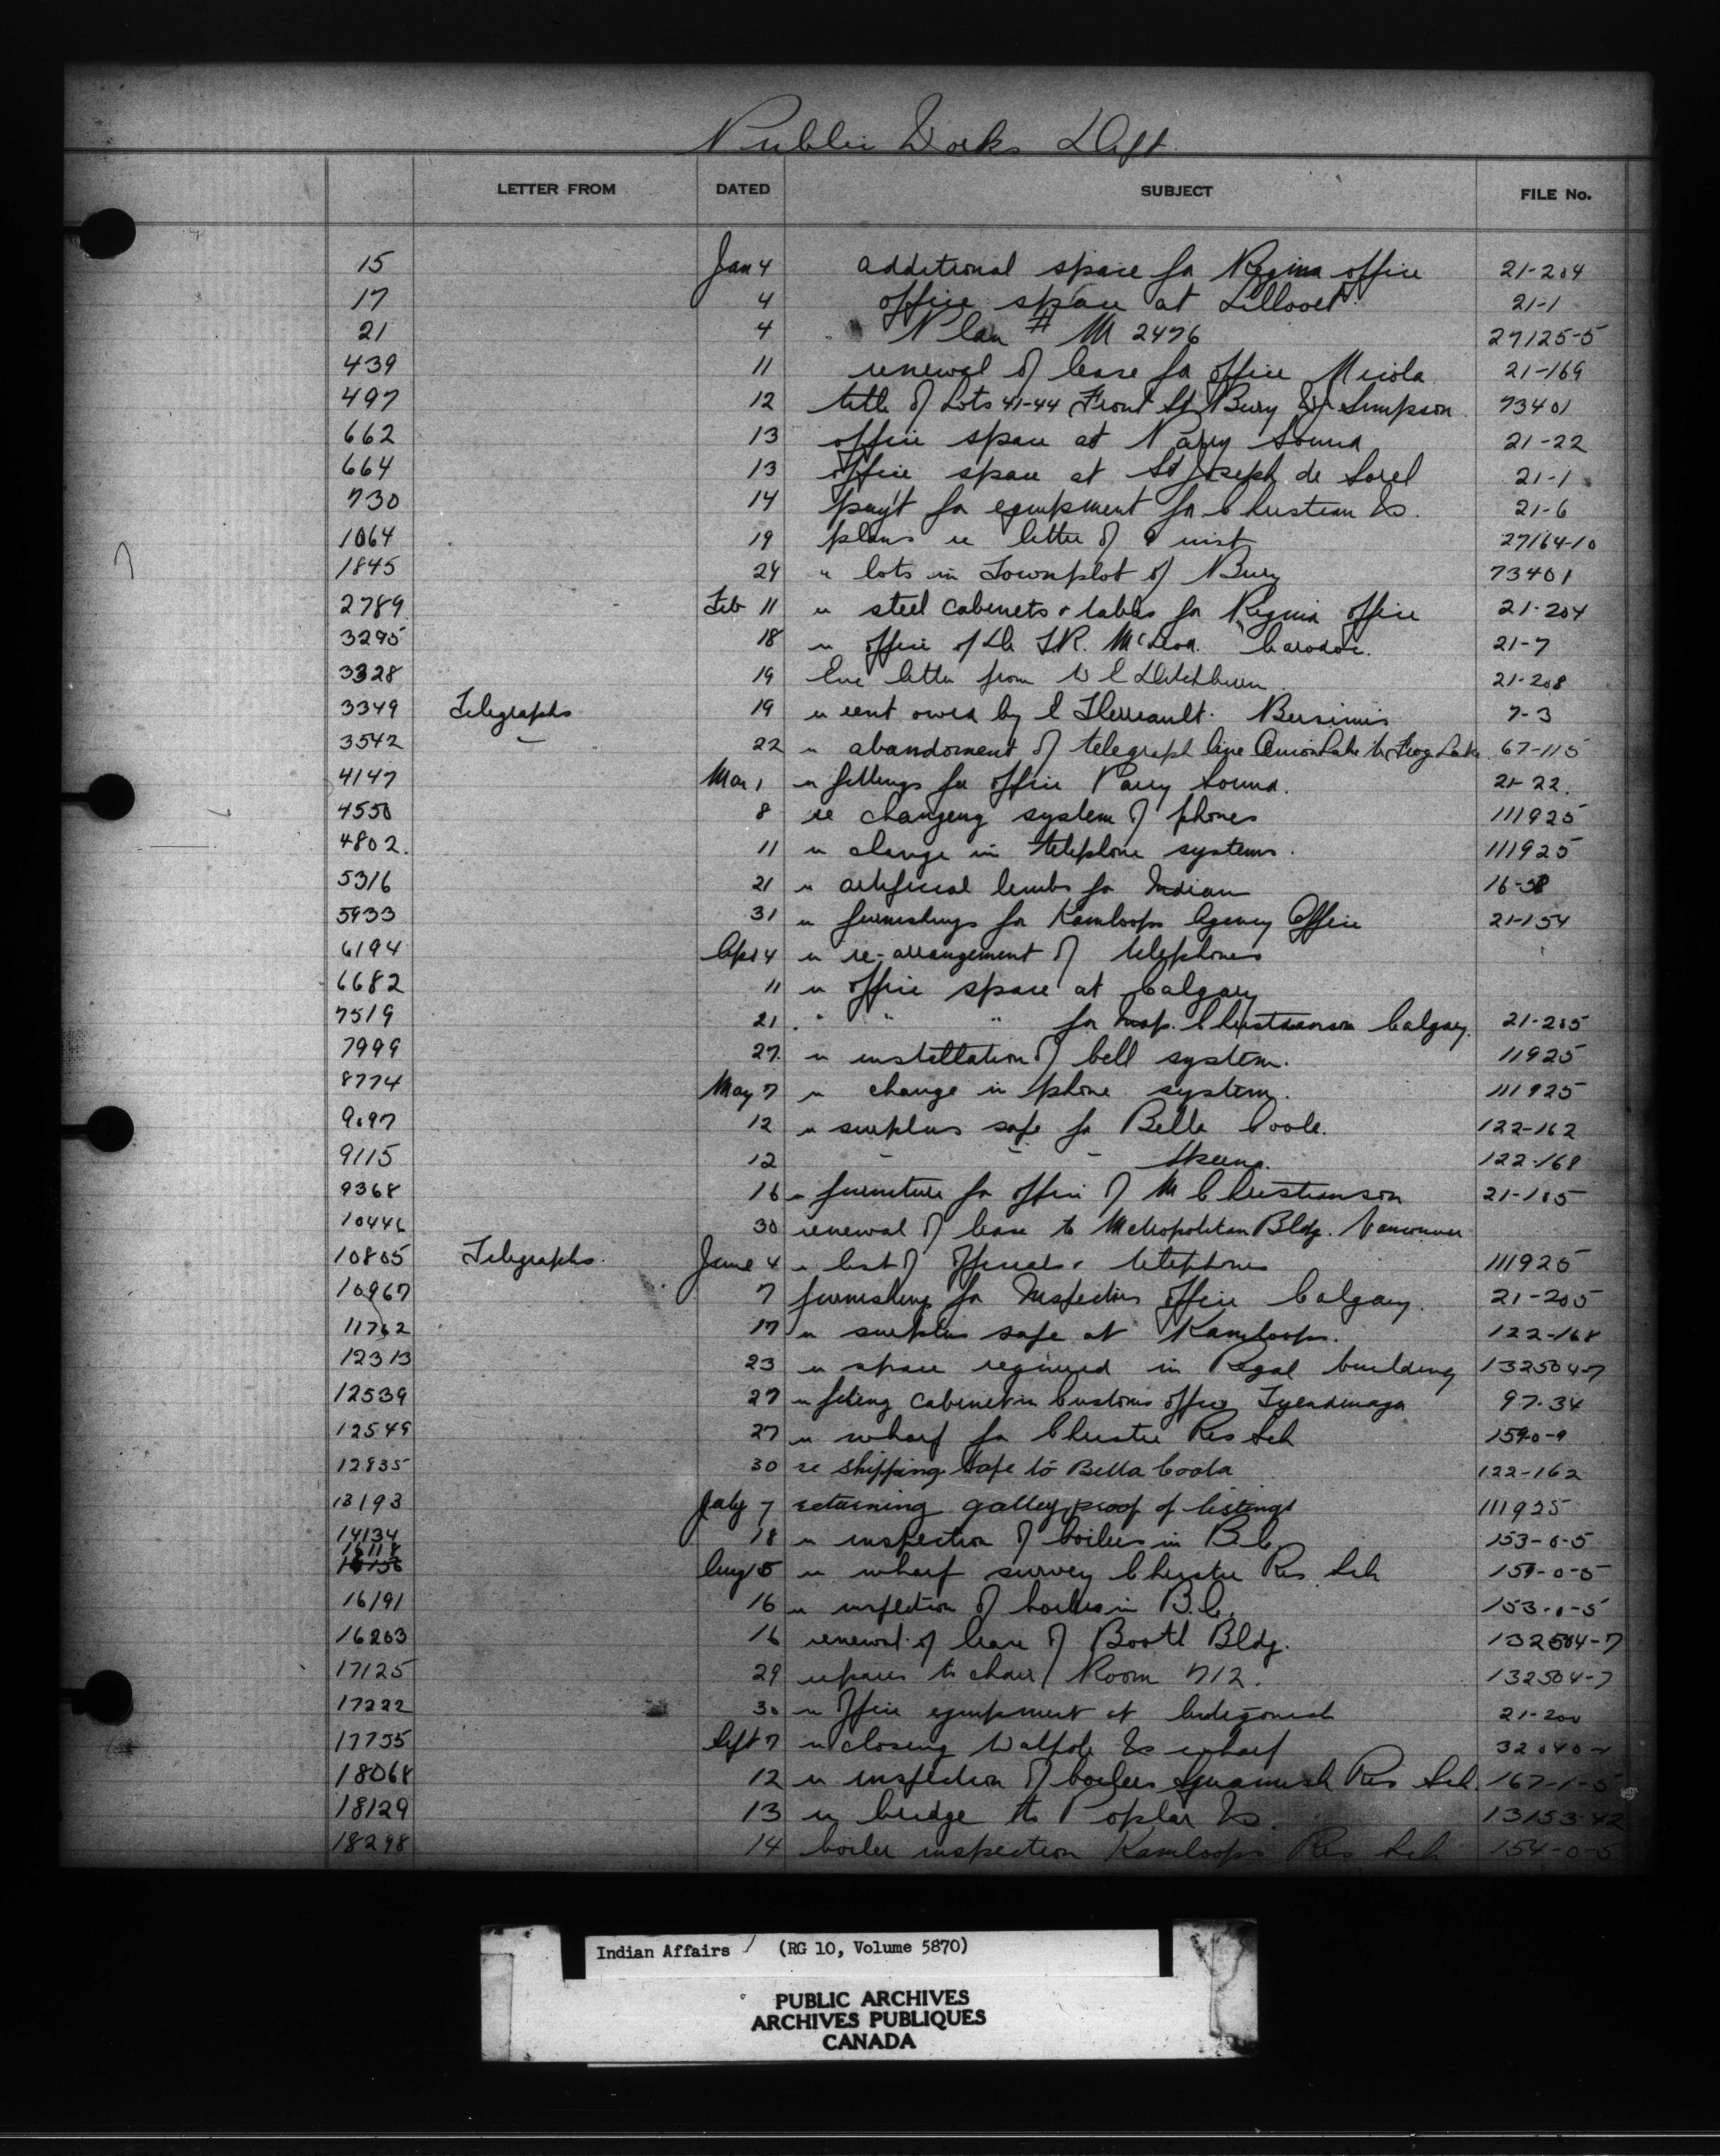 Public Works Dept
LETTER FROM DATED SUBJECT FILE No.
15 Jan 4 additional space for Regina office 21-204
17 4 office space at Lillooet 21-1
21 4 Plan # M 2476 27125-5
439 11 renewal of lease for office Nicola 21-169
497 12 title of Lots 41-44 Front St Bury Simpson 73401
662 13 office space at Parry Sound 21-22
664 13 office space at St Joseph de Sorel 21-1
730 14 pay't for equipment for Christian Is. 21-6
1064 19 plans re letter of inst 27164-10
1845 24 " lots in Townplot of Bury 73401
2789 Feb 11 re steel cabinets & tables for Regina office 21-204
3295 18 re office of Dr McLeod Caradoc. 21-7
3328 19 letter from W E Ditchburn 21-208
3349 Telegraphs 19 re rent owed by Bersimis 7-3
3542 22 re abandonment of telegraph line Onion Lake to Frog Lake 67-115
4147 Mar 1 re fittings for office Parry Sound. 21-22.
4550 8 re changeng system of phones 111925
4802. 11 re change in telephone systems. 111925
5316 21 re artificial limbs for Indian 16-
5933 31 re furnishings for Kamloops Agency Office 21-154
6194 Apr 4 re re-arrangement of telephones
6682 11 re office space at Calgary
7519 21 " " " for Insp. Christianson Calgary. 21-205
7999 27. re instellation of bell system. 11925
8774 May 7 re change in phone system. 111925
9097 12 re surplus safe for Bella Coola. 122-162
9115 12 - - - Skeena. 122-168
9368 16 re furniture for office of M Christianson 21-105
10446 30 renewal of lease to Metropolitan Bldg. Vancouver
10805 Telegraphs. June 4 re list of officials & telephones 111925
10967 7 furnishing for Inspectors office Calgary. 21-205
11762 17 re surplus safe at Kamloops. 122-168
12313 23 re space required in Regal building 132504-7
12539 27 re fileing cabinet in Customs office Tyendinaga 97-34
12549 27 re wharf for Christie Res Sch
12835 30 re shipping safe to Bella Coola 122-162
13193 July 7 returning galley proof of listings 111925
14134 18 re inspection of boilers in B.C. 153-0-5
16118
16156 Aug 15 re wharf survey Christie Res Sch 159-0-5
16191 16 re inspection of boilers in B.C. 153-0-5
16203 16 renewal of lease of Booth Bldg. 132504-7
17125 29 repairs to chair Room 712. 132504-7
17222 30 re office equipment at Antigonish 21-200
17755 Sept 7 re closing Walpole Is wharf 32040-1
18068 12 re inspection of boilers Squamish Res Sch 167-1-5
18129 13 re bridge to Poplar Is. 13153-42
18298 14 boiler inspection Kamloops Res Sch 154-0-5
Indian Affairs / (RG 10, Volume 5870)
PUBLIC ARCHIVES
ARCHIVES PUBLIQUES
CANADA